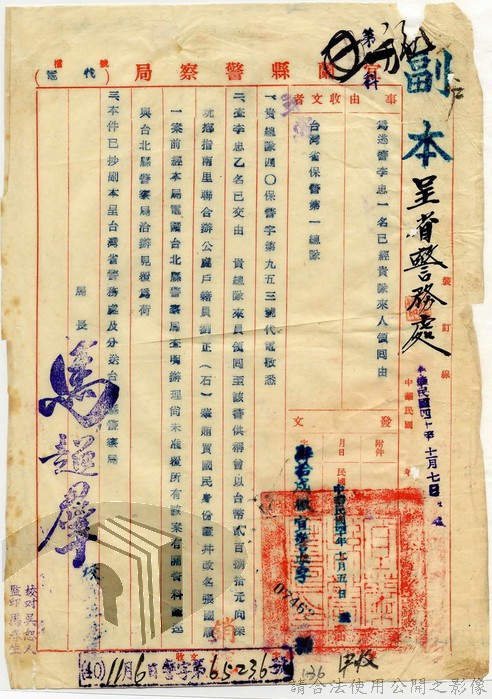 宜蘭縣警察局
代電
副本 呈省警務處
事由
收文者
為逃警李忠一名已經貴隊來人領回由
台灣省保警第一總隊
一、貴總隊四〇保警字第九五三號代電敬悉
二、查李忠乙名已交由 貴總隊來員領回至該警供稱曾以台幣貳百捌拾元向深
坑鄉指南里聯合辦公處戶籍員劉正（石）業賄買國民身份證並改名張國順
一案前經本局電關台北縣警察局查明辦理尚未准覆所有該案有關資料逕
與台北縣警察局洽辦見覆為荷
三、本件已抄副本呈台灣省警務處及分送台北縣警察局
局長 馬超群
校對 吳恕人
監印 馬
裝 訂 線
中華民國四十年十一月七日
中華民國 年
發文
附件
月日
民國四十年十一月五日
07462
(40)11月6日 警字第65236號
136
請合法使用公開之影像